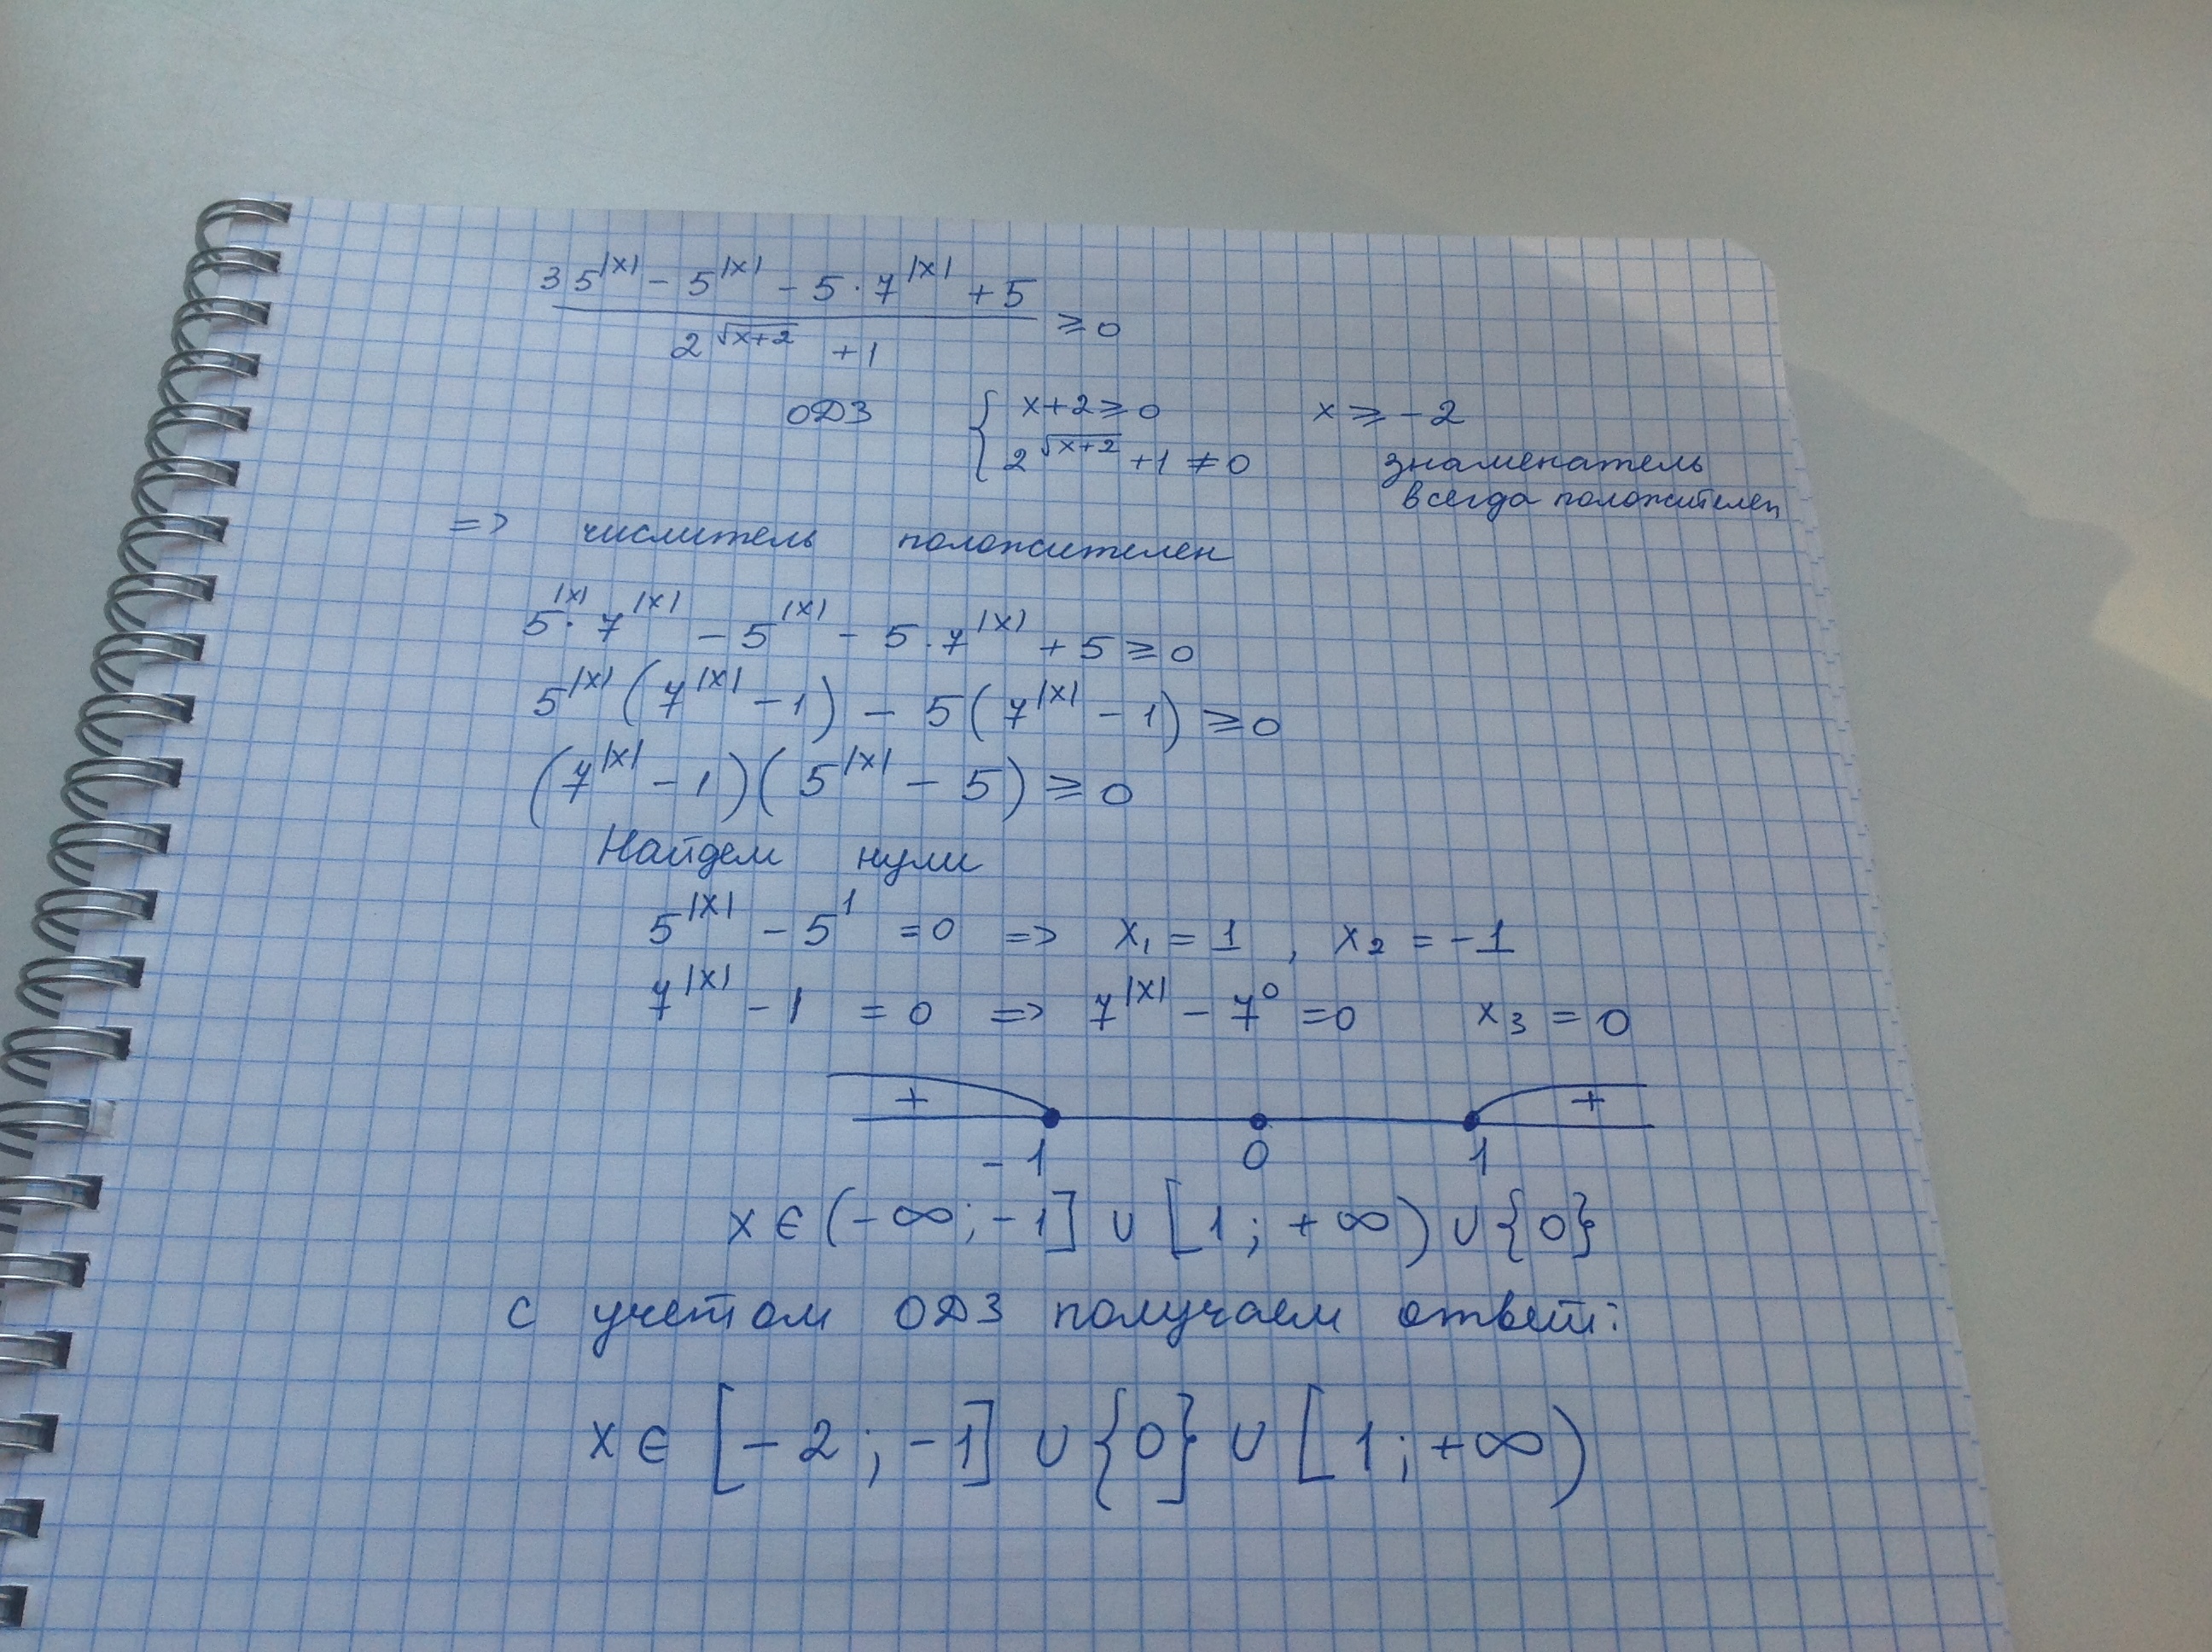 35^|x| - 5^|x| - 5·7^|x| + 5
2^√(x+2) + 1 ≥ 0
ОДЗ { x+2 ≥ 0 x ≥ -2
2^√(x+2) + 1 ≠ 0 знаменатель
всегда положителен
=> числитель положителен
5^|x| · 7^|x| - 5^|x| - 5·7^|x| + 5 ≥ 0
5^|x| (7^|x| - 1) - 5(7^|x| - 1) ≥ 0
(7^|x| - 1)(5^|x| - 5) ≥ 0
Найдем нули
5^|x| - 5^1 = 0 => x₁ = 1, x₂ = -1
7^|x| - 1 = 0 => 7^|x| - 7^0 = 0 x₃ = 0
+ +
-1 0 1
x ∈ (-∞; -1] ∪ [1; +∞) ∪ {0}
с учетом ОДЗ получаем ответ:
x ∈ [-2; -1] ∪ {0} ∪ [1; +∞)